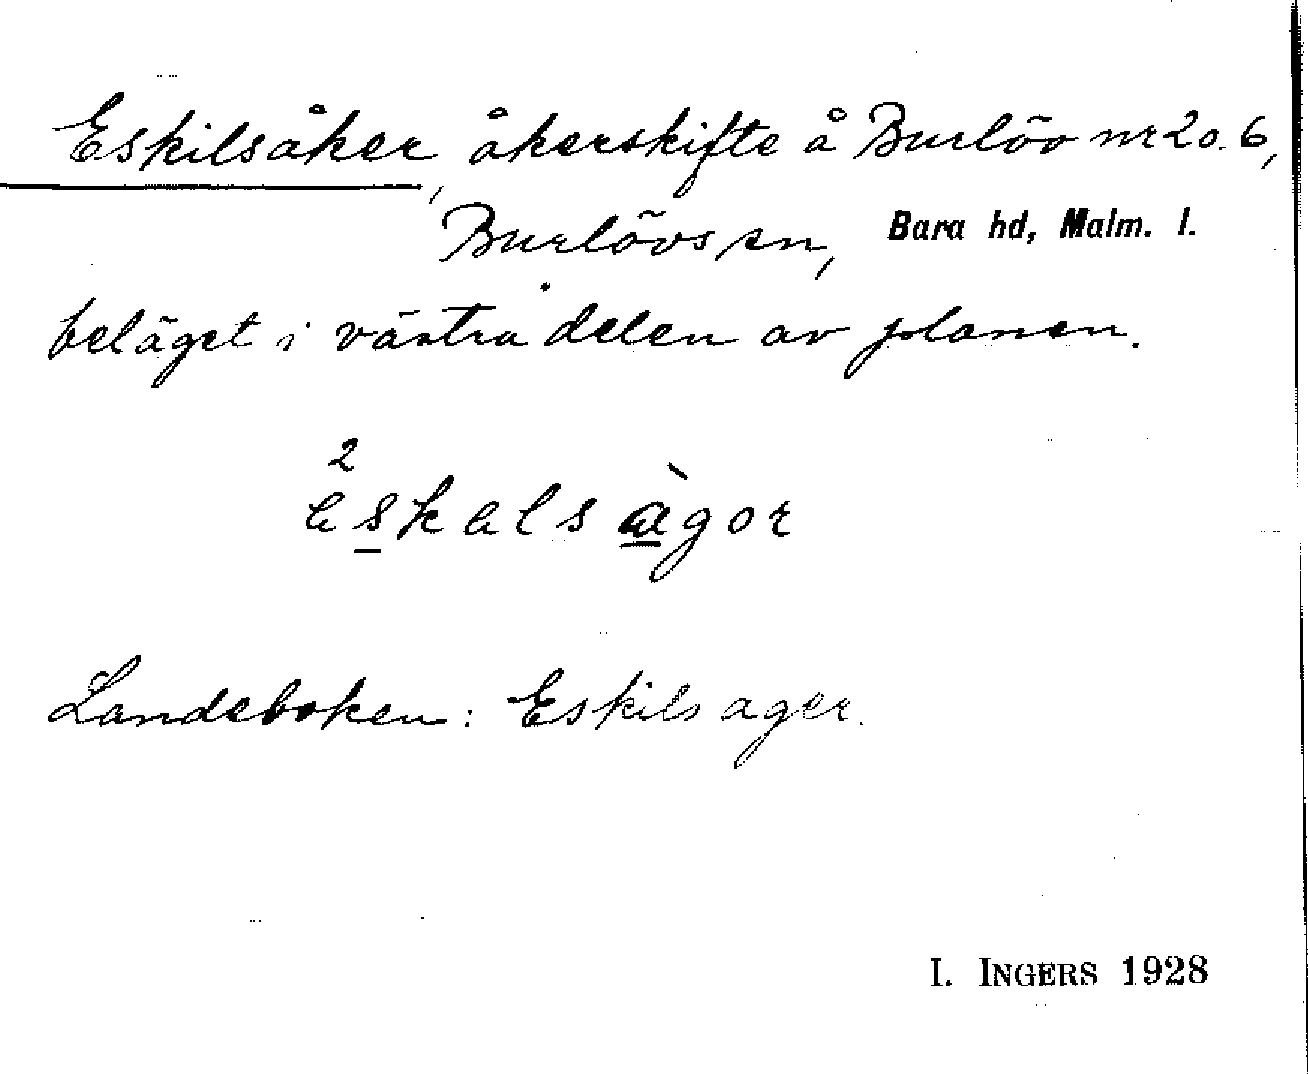 Eskilsåker, åkerskifte å Burlöv nr 2 o. 6,
Burlövs sn, Bara hd, Malm. l.
beläget i västra delen av planen.
2
eskəlsàgor
Landeboken: Eskils ager.
I. INGERS 1928